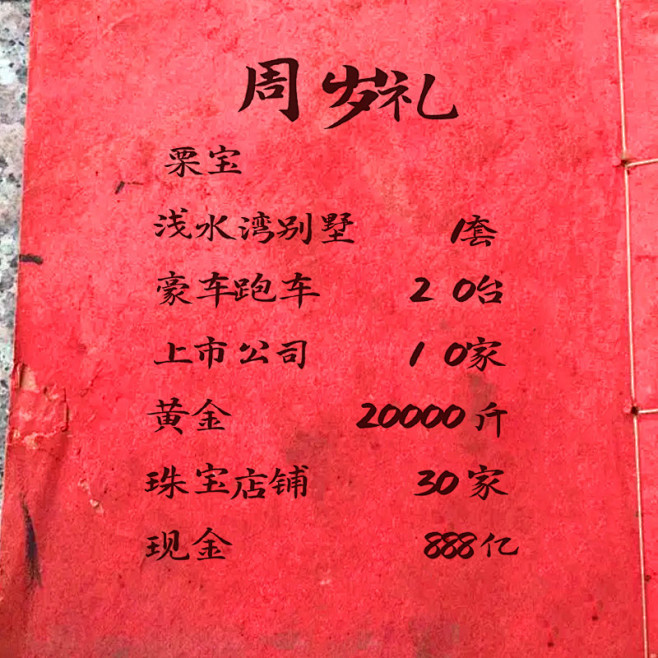 周岁礼
栗宝
浅水湾别墅 1套
豪车跑车 20台
上市公司 10家
黄金 20000斤
珠宝店铺 30家
现金 888亿